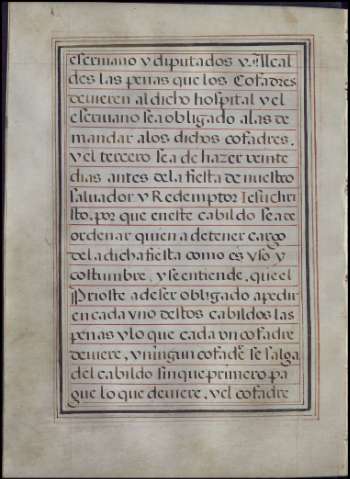 escrivano y diputados y Alcal
des las penas que los Cofadres
devieren al dicho hospital y el
escrivano sea obligado a las de
mandar alos dichos cofadres.
y el tercero sea de hazer veinte
dias antes dela fiesta de nuestro
salvador y Redemptor Iesuchri
sto, por que eneste cabildo sea de
ordenar quien a detener cargo
dela dicha fiesta como es vso y
costumbre, y se entiende, que el
Prioste a de ser obligado a pedir
en cada vno destos cabildos las
penas y lo que cada vn cofadre
deviere, y ningun cofadre se salga
del cabildo sin que primero pa
gue lo que deviere, y el cofadre